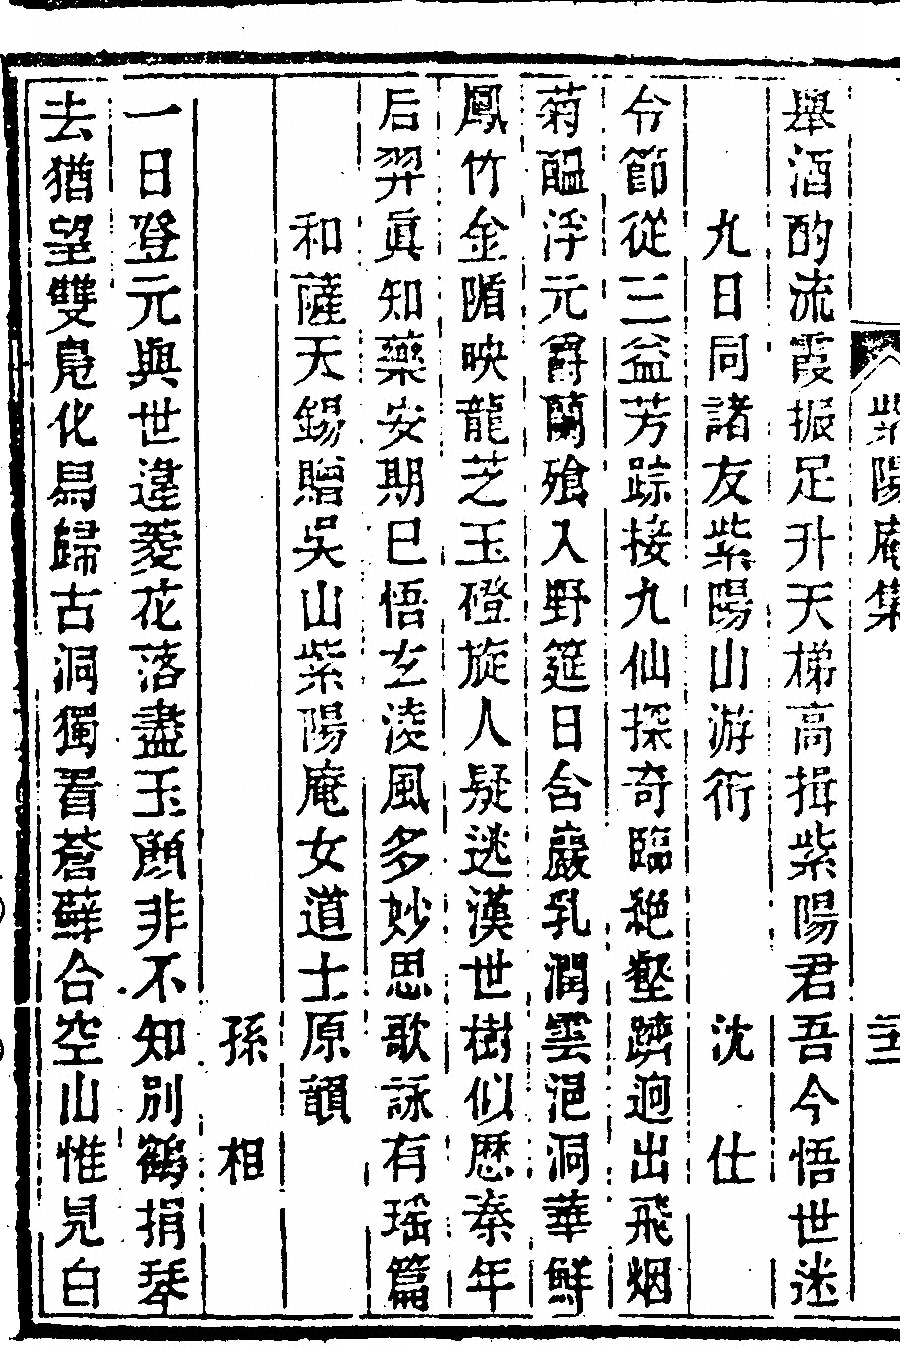 紫陽庵集
舉酒酌流霞振足升天梯高揖紫陽君吾今悟世迷
九日同諸友紫陽山游衍 沈仕
令節從三益芳踪接九仙探奇臨絶壑躋迥出飛烟
菊醖浮元爵蘭飱入野筵日含巖乳潤雲浥洞華鮮
鳳竹金䧟映龍芝玉磴旋人疑逃漢世樹似歷秦年
后羿眞知藥安期巳悟玄淩風多妙思歌詠有瑶篇
和薩天錫贈吳山紫陽庵女道士原韻
孫相
一日登元與世違菱花落盡玉顔非不知別鶴捐琴
去猶望雙鳬化舄歸古洞獨看蒼蘚合空山惟見白